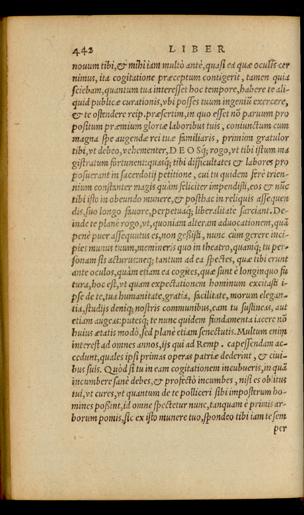 442 LIBER
nouum tibi, & mihi iam multò antè, quasi ea quæ oculis cer
nimus, ita cogitatione præceptum contigerit, tamen quia
sciebam, quantum tua interesset hoc tempore, habere te ali-
quid publicæ curationis, vbi posses tuum ingeniũ exercere,
& te ostendere reip. præsertim, in quo esset nõ paruum pro
positum præmium gloriæ laboribus tuis, coniunctum cum
magna spe augendæ rei tuæ familiaris, primùm gratulor
tibi, vt debeo, vehementer, DEOSq́; rogo, vt tibi istum ma
gistratum fortunent: quasq́; tibi difficultates & labores pro
posuerant in sacerdotij petitione, cui tu quidem ferè trien-
nium constanter magis quàm feliciter impendisti, eos & nũc
tibi isto in obeundo munere, & posthac in reliquis assequen
dis, suo longo fauore, perpetuaq́; liberalitate sarciant. De-
inde te planè rogo, vt, quoniam alteram aduocationem, quã
penè puer assequutus es, non gessisti, nunc cùm gerere inci-
pies munus tuum, memineris quo in theatro, quamq́; tu per-
sonam sis acturus: neq; tantum ad ea spectes, quæ tibi erunt
ante oculos, quàm etiam ea cogites, quæ sunt è longinquo fu
tura, hoc est, vt quam expectationem hominum excitasti i-
pse de te, tua humanitate, gratia, facilitate, morum elegan-
tia, studijs deniq; nostris communibus, eam tu sustineas, aut
etiam augeas: putesq́; te nunc quidem fundamenta iacere nõ
huius ætatis modò, sed planè etiam senectutis. Multum enim
interest ad omnes annos, ijs qui ad Remp. capessendam ac-
cedunt, quales ipsi primas operas patriæ dederint, & ciui-
bus suis. Quòd si tu in eam cogitationem incubueris, in quã
incumbere sanè debes, & profectò incumbes, nisi es oblitus
tui, vt cures, vt quantum de te polliceri sibi impostèrum ho-
mines possent, id omne spectetur nunc, tanquam è primis ar-
borum pomis, sic ex isto munere tuo, spondeo tibi iam te sem
per